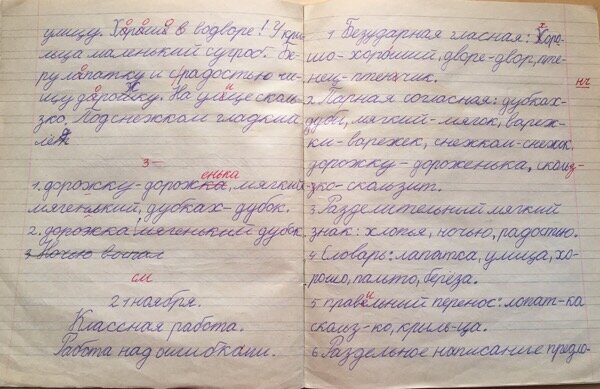 улицу. Хорошо в водворе! У кры-
льца маленький сугроб. Бе-
ру лопатку и с радостью чи-
щу дорожку. На улице сколь-
зко. Под снежком гладкий
лёд
3-
енька
1. дорожку-дорожка, мягкий
мягенький, дубках-дубок.
2. дорожка мягенький дубок.
3. Ночью выпал
см
21 ноября.
Классная работа.
Работа над ошибками.
1 Безударная гласная: Хоро-
шо-хороший, дворе-двор, пте-
нец-птенчик.
нч
2. Парная согласная: дубках-
дубы, мягкий-мягок, вареж-
ки-варежек, снежком-снежок,
дорожку-дороженька, сколь-
зко-скользит.
3. Разделительный мягкий
знак: хлопья, ночью, радостью.
4 Словарь: лопатса, улица, хо-
рошо, пальто, берёза.
5 правильный перенос: лопат-ка
скольз-ко, крыль-ца.
6. Раздельное написание предло-